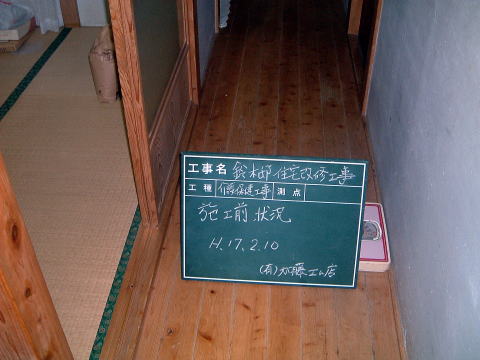 工事名 鈴木邸住宅改修工事
工種 介護保健工事 測点
施工前状況
H.17.2.10
(有)加藤工ム店